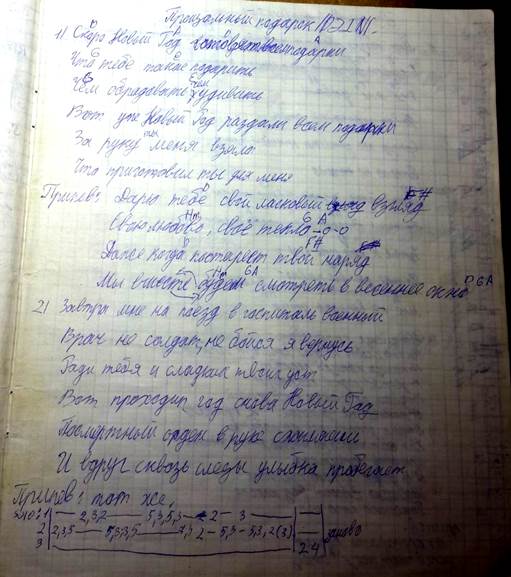 Прощальный подарок
1) Скоро Новый Год готовят всем подарки
Что тебе такое подарить
Чем обрадовать чем удивить
Вот уж Новый Год раздали всем подарки
За руку ты меня взяла
Что приготовил ты для меня
Припев: Дарю тебе свой ласковый взгляд F#
Свою любовь, своё тепло-о-о
Даже когда постареет твой наряд
Мы вместе будем смотреть в весеннее окно
2) Завтра мне на поезд в госпиталь военный
Врач не солдат, не бойся я вернусь
Ради тебя и сладких твоих уст
Вот проходит год снова Новый Год
Посмертный орден в руке
И вдруг сквозь слёзы улыбка пробегает
Припев: тот же,
1 2,3,2 5,3,5,3 2 - 3
2 2,3,5 5,3,3,5 2 - 5,3 - 5,3,2(3) заново
3 24